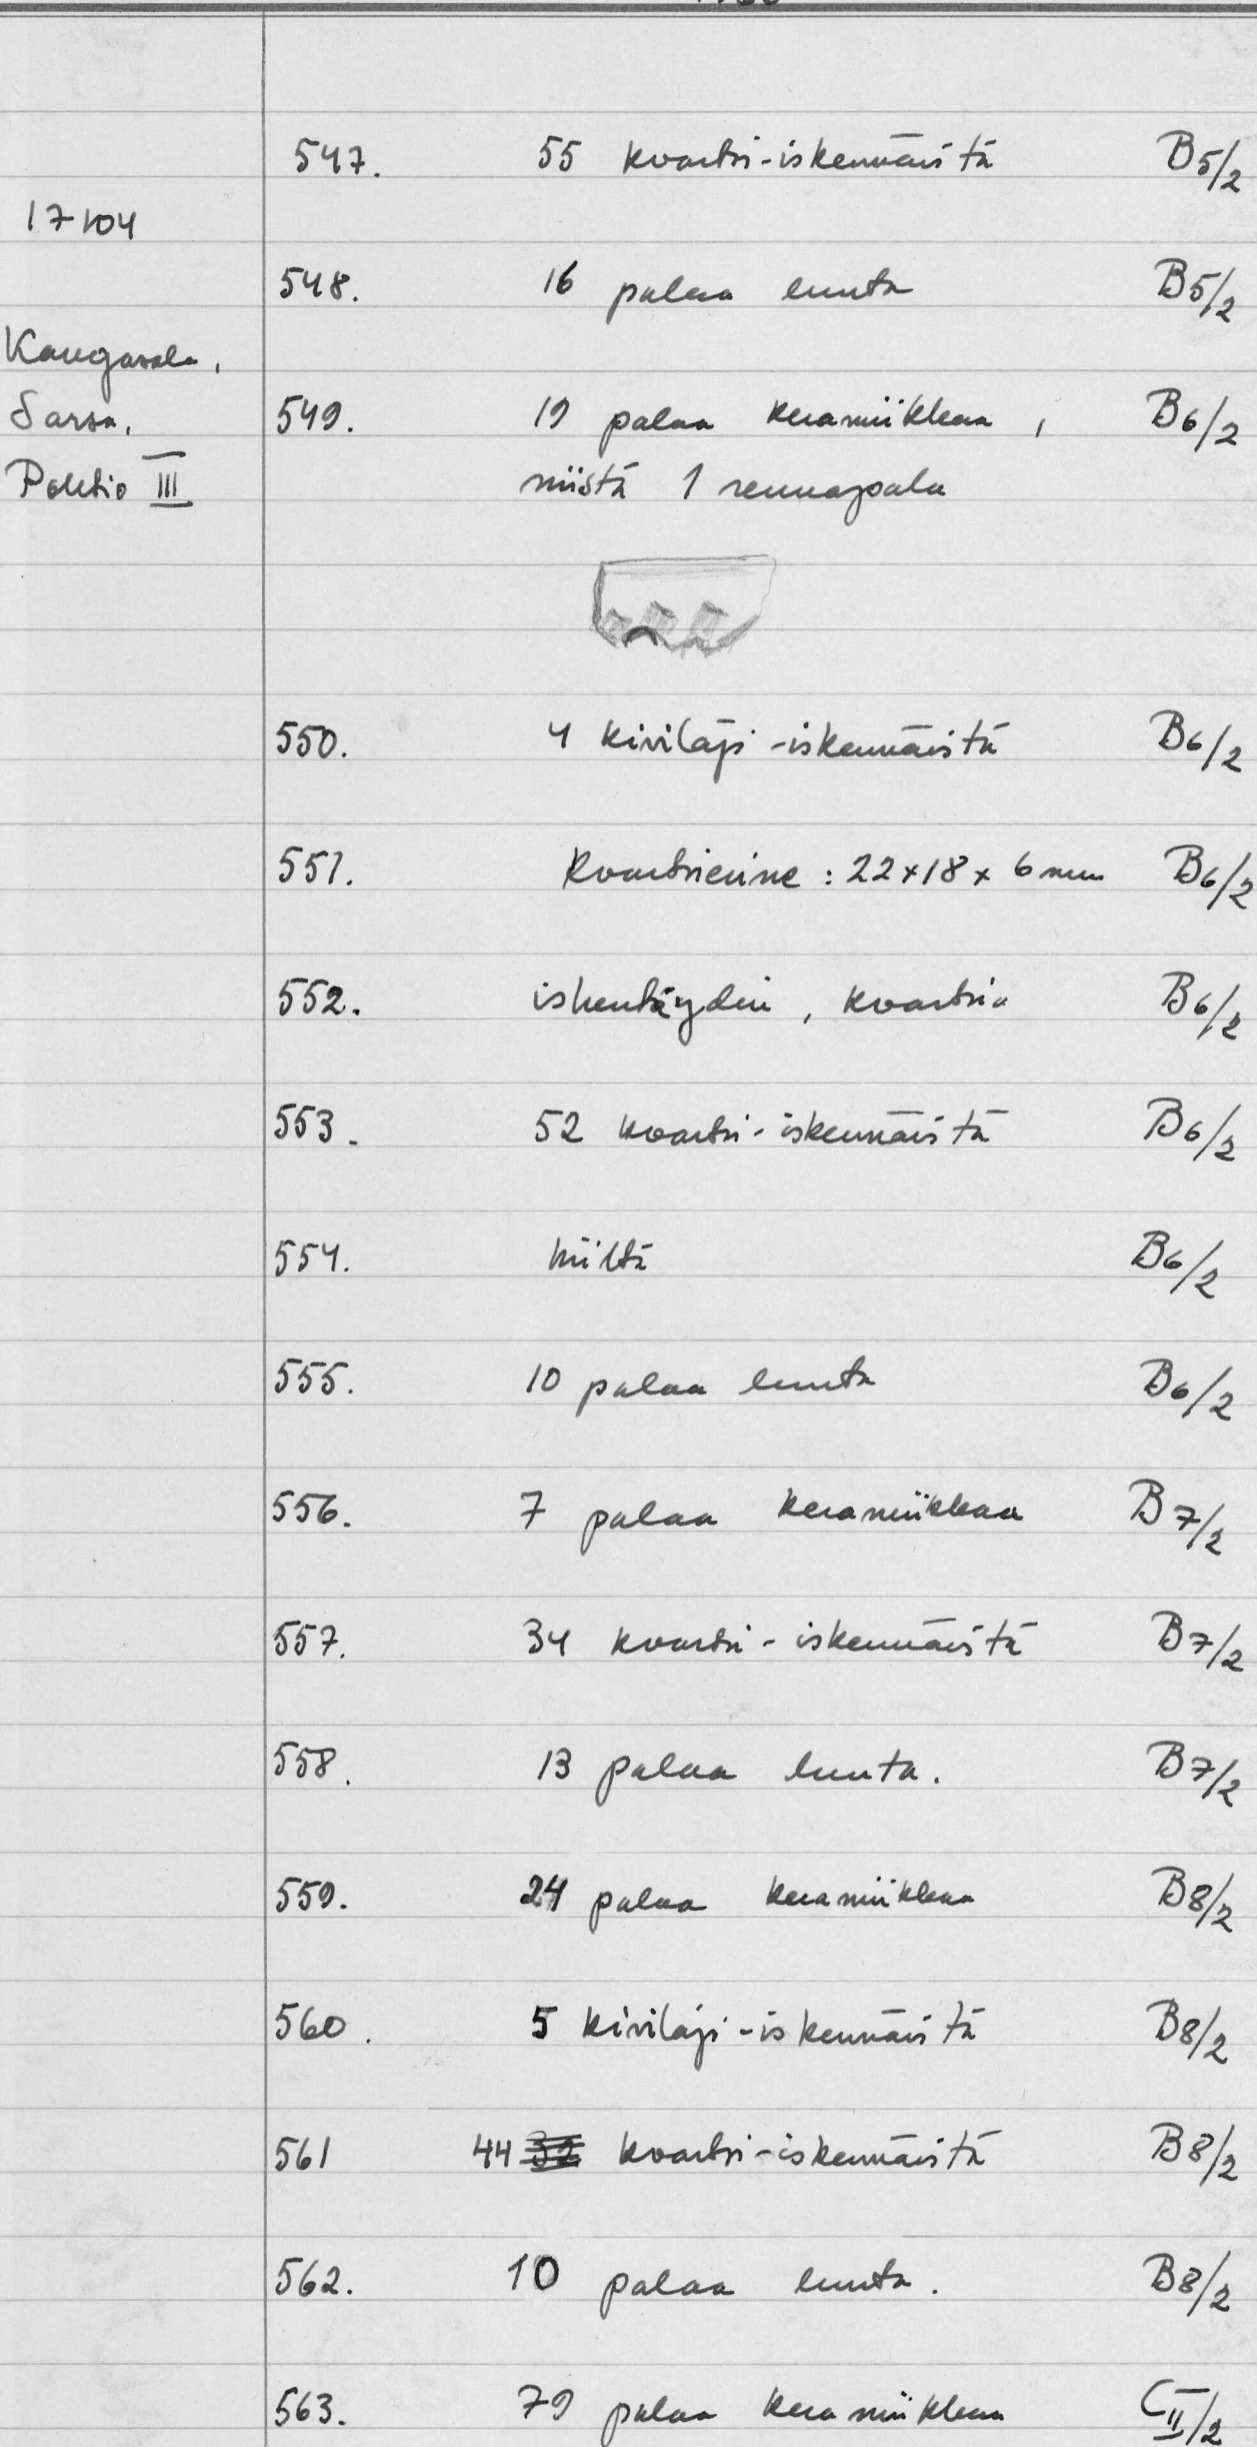 547. 55 kvartsi-iskennäistä B5/2
17104
548. 16 palaa luuta B5/2
Kangasala,
Sarsa, 549. 19 palaa keramiikkaa, B6/2
Pohtio III niistä 1 reunapala
550. 4 kivilaji-iskennäistä B6/2
551. Kvartsiesine: 22×18×6 mm B6/2
552. iskentäydin, kvartsia B6/2
553. 52 kvartsi-iskennäistä B6/2
554. hiiltä B6/2
555. 10 palaa luuta B6/2
556. 7 palaa keramiikkaa B7/2
557. 34 kvartsi-iskennäistä B7/2
558. 13 palaa luuta. B7/2
559. 24 palaa keramiikkaa B8/2
560. 5 kivilaji-iskennäistä B8/2
561 44 32 kvartsi-iskennäistä B8/2
562. 10 palaa luuta. B8/2
563. 79 palaa keramiikkaa CII/2